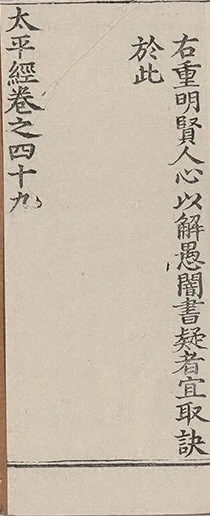 右重明賢人心以解愚闇書疑者宜取訣
於此
太平經卷之四十九